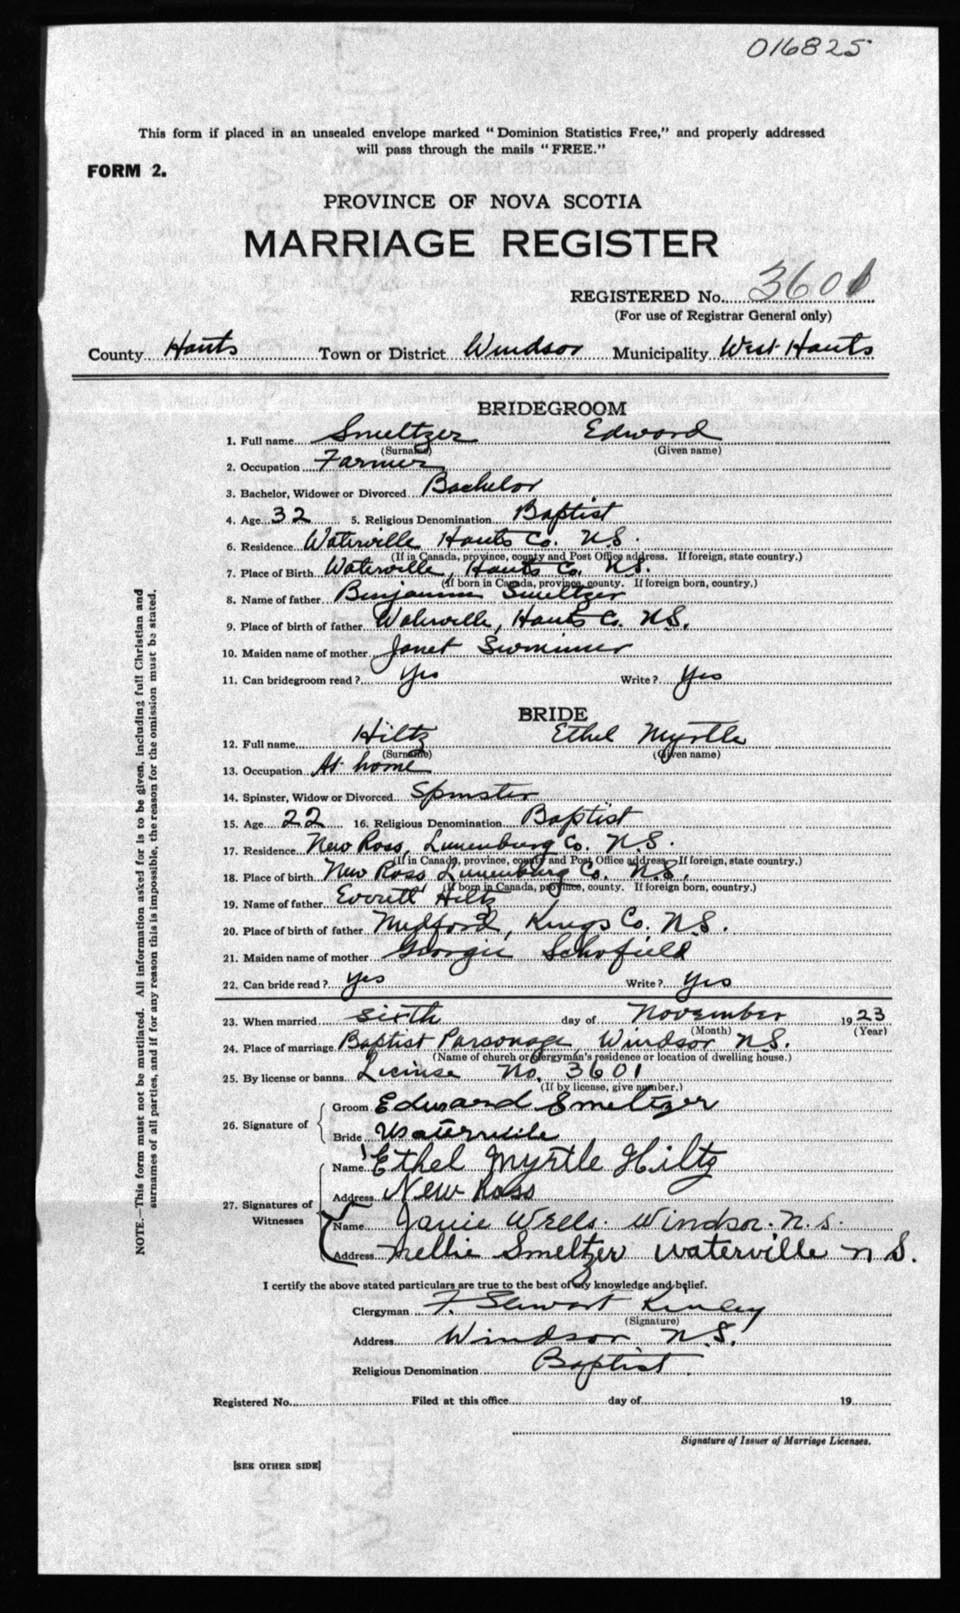 016825
This form if placed in an unsealed envelope marked "Dominion Statistics Free," and properly addressed
will pass through the mails "FREE."
FORM 2.
PROVINCE OF NOVA SCOTIA
MARRIAGE REGISTER
REGISTERED No. 3601
(For use of Registrar General only)
County Hants Town or District Windsor Municipality West Hants
BRIDEGROOM
1. Full name Smeltzer Edward
(Surname) (Given name)
2. Occupation Farmer
3. Bachelor, Widower or Divorced Bachelor
4. Age 32 5. Religious Denomination Baptist
6. Residence Waterville Hants Co. N.S.
(If in Canada, province, county and Post Office address. If foreign, state country.)
7. Place of Birth Waterville, Hants Co. N.S.
(If born in Canada, province, county. If foreign born, country.)
8. Name of father Benjamin Smeltzer
9. Place of birth of father Waterville, Hants Co. N.S.
10. Maiden name of mother Janet Swimmer
11. Can bridegroom read? Yes Write? Yes
BRIDE
12. Full name Hiltz Ethel Myrtle
(Surname) (Given name)
13. Occupation At home
14. Spinster, Widow or Divorced Spinster
15. Age 22 16. Religious Denomination Baptist
17. Residence New Ross, Lunenburg Co. N.S.
(If in Canada, province, county and Post Office address. If foreign, state country.)
18. Place of birth New Ross Lunenburg Co. N.S.
(If born in Canada, province, county. If foreign born, country.)
19. Name of father Everett Hiltz
20. Place of birth of father Medford, Kings Co. N.S.
21. Maiden name of mother Georgie Schofield
22. Can bride read? Yes Write? Yes
23. When married sixth day of November 1923
(Month) (Year)
24. Place of marriage Baptist Parsonage, Windsor N.S.
(Name of church or clergyman's residence or location of dwelling house.)
25. By license or banns License No. 3601
(If by license, give number.)
26. Signature of Groom Edward Smeltzer
Bride Waterville
27. Signatures of Witnesses Name Ethel Myrtle Hiltz
Address New Ross
Name Janie Wells. Windsor. N.S.
Address Nellie Smeltzer Waterville N S.
I certify the above stated particulars are true to the best of my knowledge and belief.
Clergyman F. Stewart Kinley
(Signature)
Address Windsor N.S.
Religious Denomination Baptist
Registered No. Filed at this office day of 19
Signature of Issuer of Marriage Licenses.
[SEE OTHER SIDE]
NOTE.—This form must not be mutilated. All information asked for is to be given, including full Christian and
surnames of all parties, and if for any reason this is impossible, the reason for the omission must be stated.